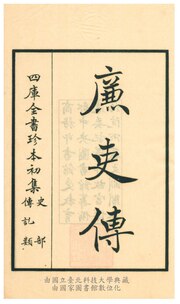 廉吏傳
四庫全書珍本初集
史部
傳記類
由國立臺北科技大學典藏
由國家圖書館數位化